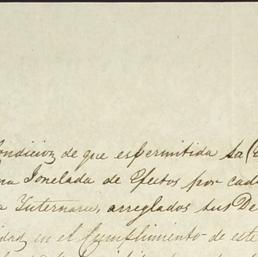 ondicion de que es permitida la
na Tonelada de Efectos por cad
a Internaru, arreglados sus De
idad en el Cumplimento de este